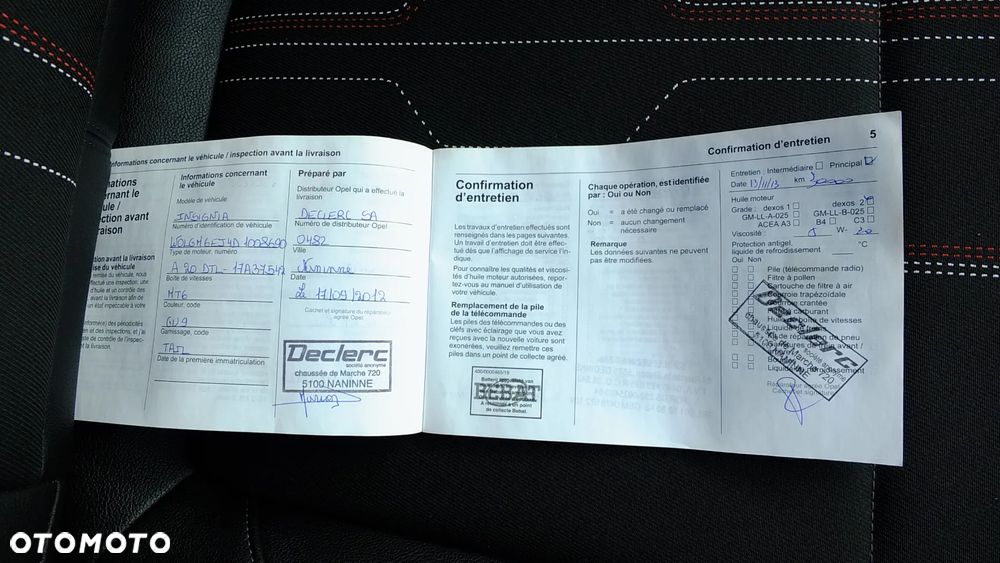 Informations concernant le véhicule / inspection avant la livraison
Informations concernant
le véhicule
Modèle de véhicule
INSIGNIA
Numéro d'identification de véhicule
Type de moteur, numéro
A 20 DTL-
Boîte de vitesses
MT6
Couleur, code
Garnissage, code
TAJL
Date de la première immatriculation
Préparé par
Distributeur Opel qui a effectué la
livraison
DECLERC SA
Numéro de distributeur Opel
0482
Ville
Naninne
Date
Le 17/09/2012
Cachet et signature du réparateur
agréé Opel
Declerc
société anonyme
chaussée de Marche 720
5100 NANINNE
Confirmation
d'entretien
Les travaux d'entretien effectués sont
renseignés dans les pages suivantes.
Un travail d'entretien doit être effec-
tué dès que l'affichage de service l'in-
dique.
Pour connaître les qualités et viscosi-
tés d'huile moteur autorisées, repor-
tez-vous au manuel d'utilisation de
votre véhicule.
Remplacement de la pile
de la télécommande
Les piles des télécommandes ou des
clefs avec éclairage que vous avez
reçues avec la nouvelle voiture sont
exonérées, veuillez remettre ces
piles dans un point de collecte agréé.
BEBAT
de collecte Bebat.
Chaque opération, est identifiée
par : Oui ou Non
Oui = a été changé ou remplacé
Non = aucun changement
nécessaire
Remarque
Les données suivantes ne peuvent
pas être modifiées.
Confirmation d'entretien 5
Entretien : Intermédiaire Principal
Date 13/11/13 km
Huile moteur
Grade : dexos 1 dexos 2
GM-LL-A-025 GM-LL-B-025
ACEA A3 B4 C3
Viscosité : W-
Protection antigel,
liquide de refroidissement °C
Oui Non
Pile (télécommande radio)
Filtre à pollen
Cartouche de filtre à air
Courroie trapézoïdale
Courroie crantée
carburant
de vitesses
Kit de réparation de pneu
Réparateur agréé Opel
Cachet et signature
OTOMOTO